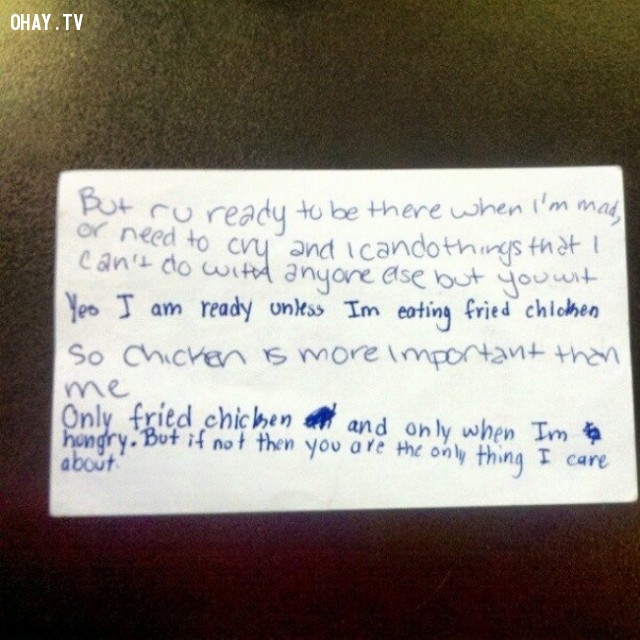 OHAY.TV
But r u ready to be there when I'm mad,
or need to cry and I can do things that I
can't do with anyone else but you wit
Yes I am ready unless Im eating fried chicken
So chicken is more important than
me
Only fried chicken and only when Im
hungry. But if not then you are the only thing I care
about.